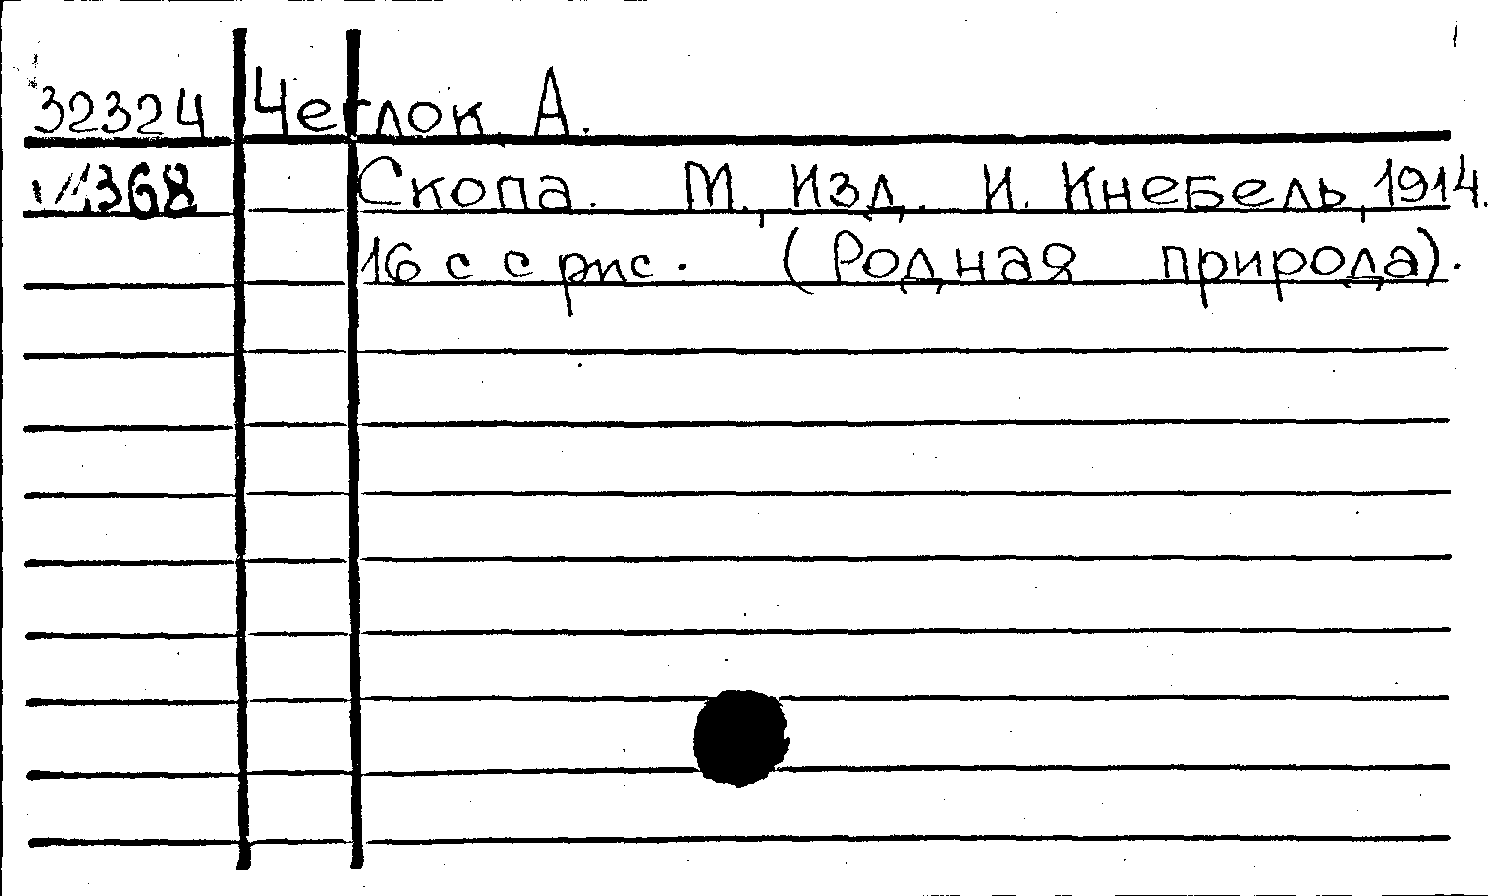 32324 Чеглок А.
368 Скопа. М., Изд. И. Кнебель, 1914.
16 с с рис. (Родная природа).